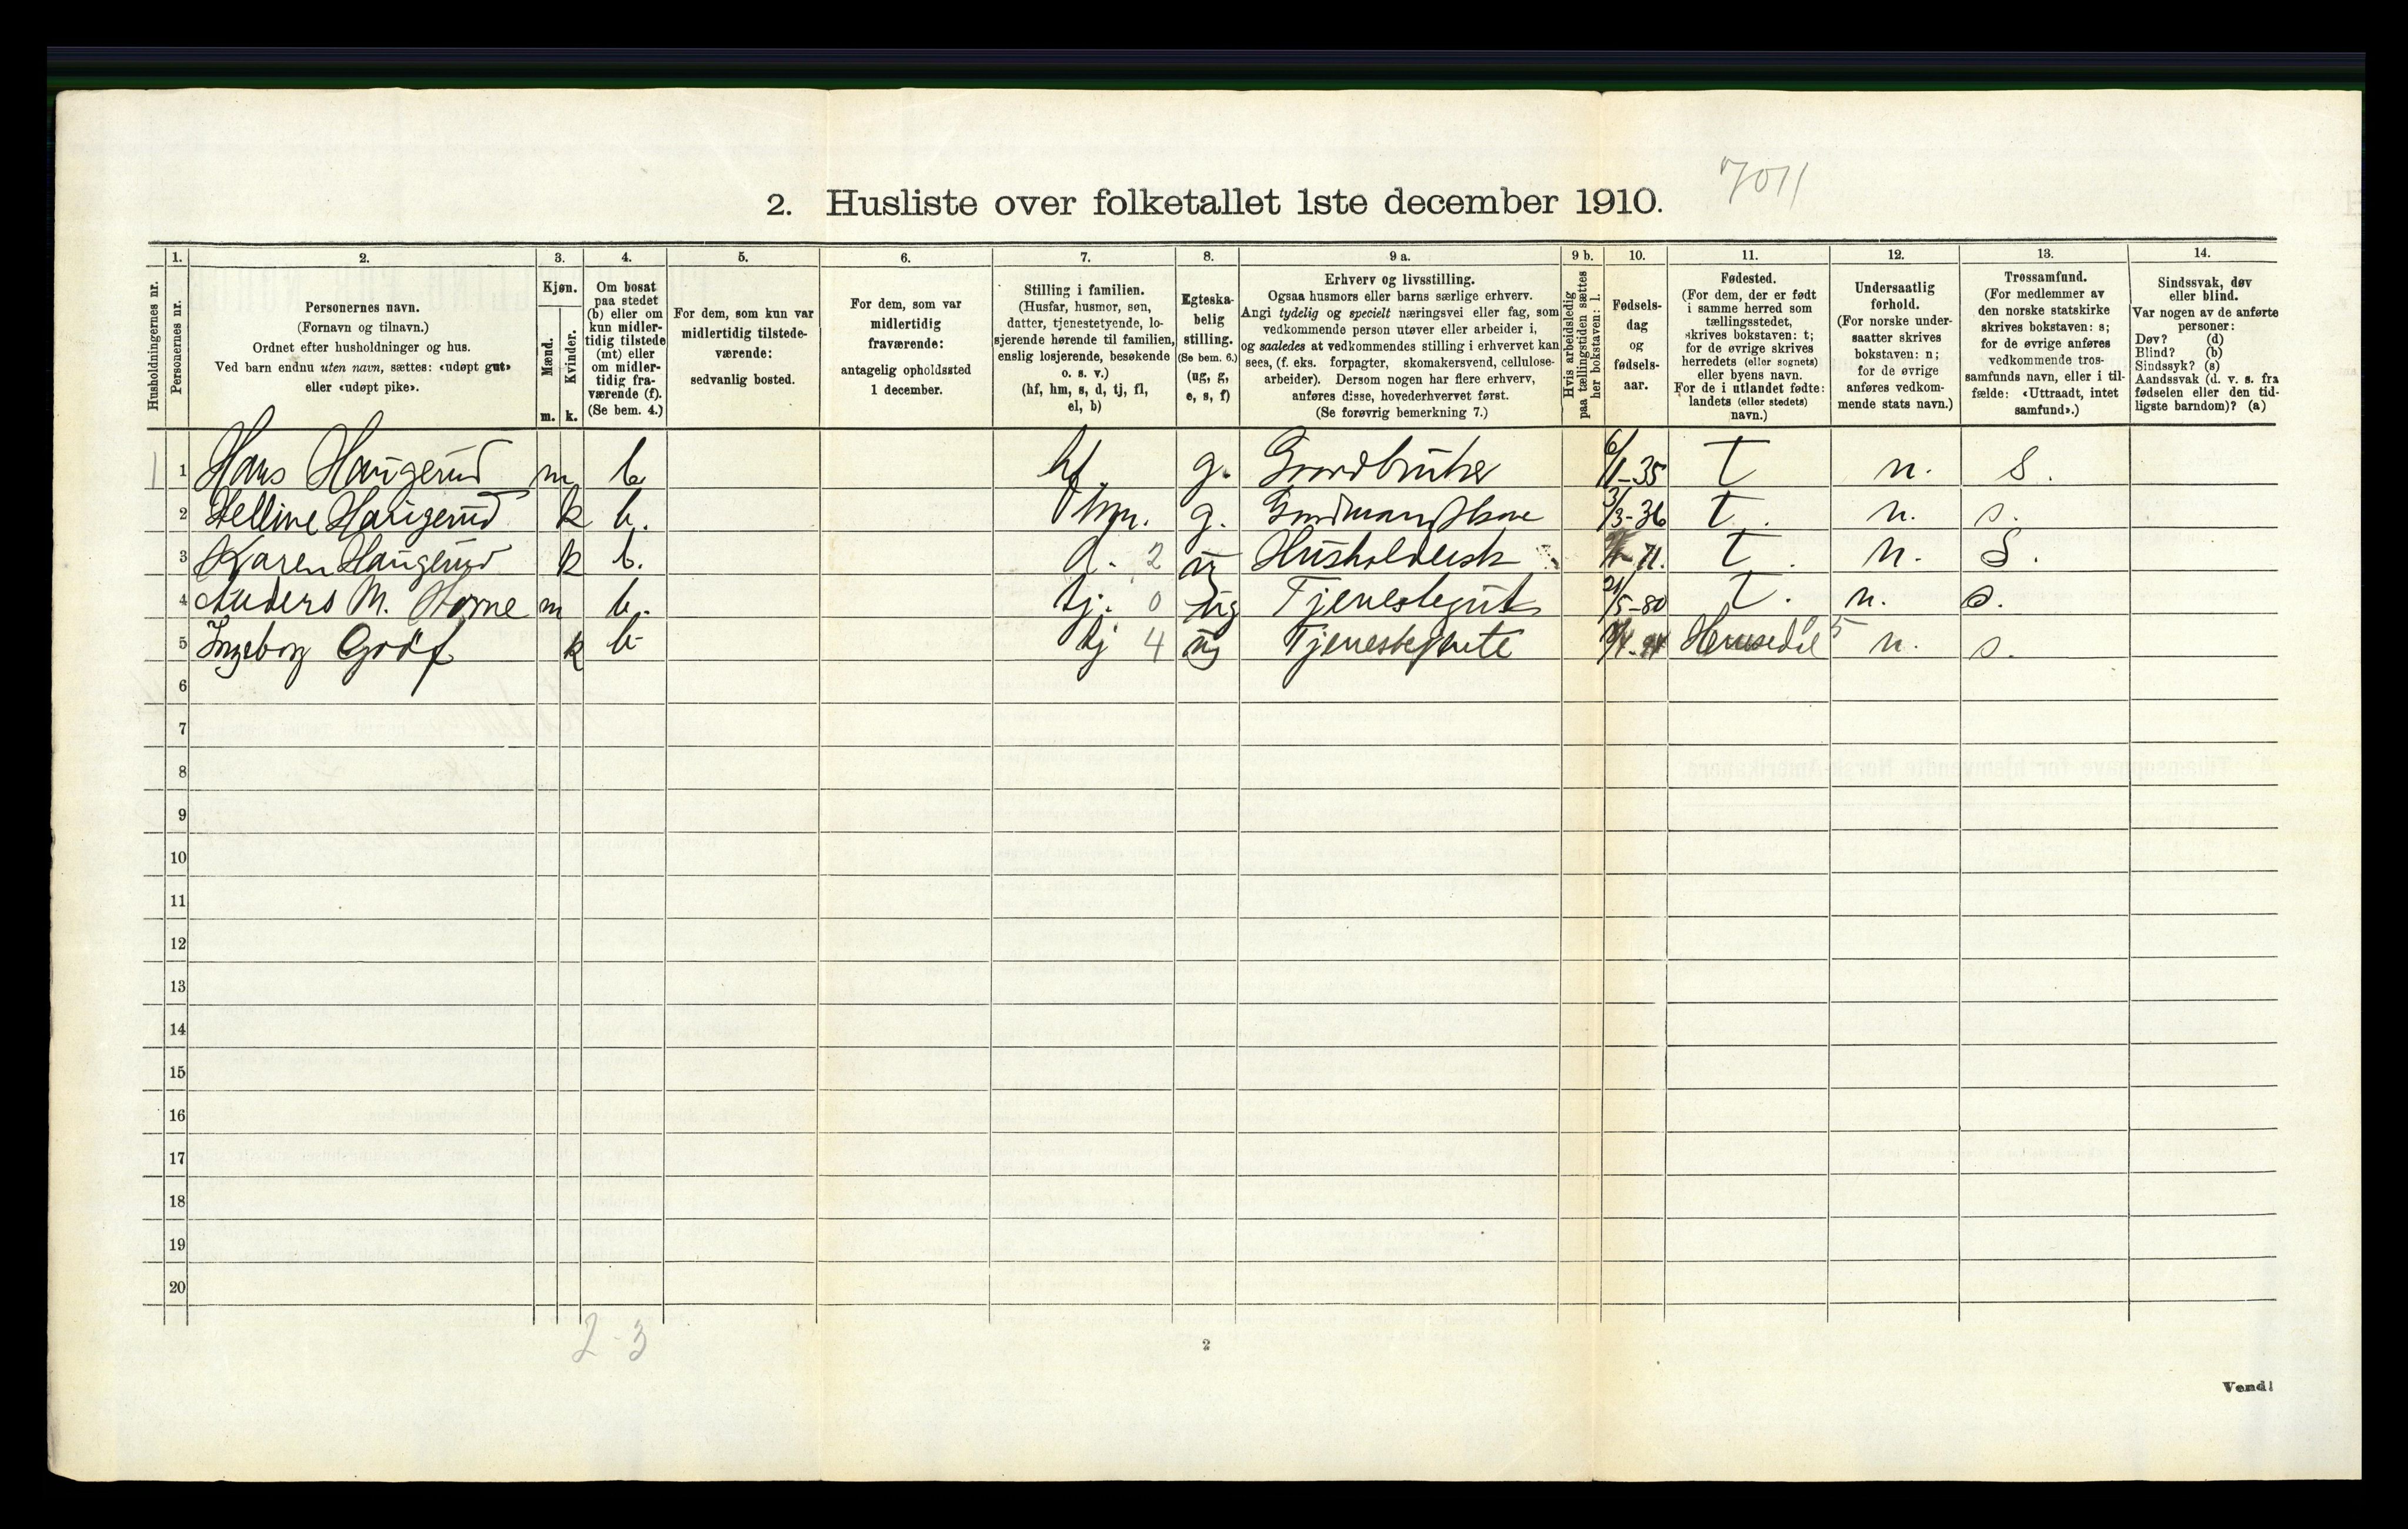 7011
2. Husliste over folketallet 1ste december 1910.
Husholdningernes nr.
1.
Personernes nr.
2.
Personernes navn.
(Fornavn og tilnavn.)
Ordnet efter husholdninger og hus.
Ved barn endnu uten navn, sættes: «udøpt gut»
eller «udøpt pike».
3.
Kjøn.
Mænd.
Kvinder.
m. k.
4.
Om bosat
paa stedet
(b) eller om
kun midler-
tidig tilstede
(mt) eller
om midler-
tidig fra-
værende (f).
(Se bem. 4.)
5.
For dem, som kun var
midlertidig tilstede-
værende:
sedvanlig bosted.
6.
For dem, som var
midlertidig
fraværende:
antagelig opholdssted
1 december.
7.
Stilling i familien.
(Husfar, husmor, søn,
datter, tjenestetyende, lo-
sjerende hørende til familien,
enslig losjerende, besøkende
o. s. v.)
(hf, hm, s, d, tj, fl,
el, b)
8.
Egteska-
belig
stilling.
(Se bem. 6.)
(ug, g,
e, s, f)
9 a.
Erhverv og livsstilling.
Ogsaa husmors eller barns særlige erhverv.
Angi tydelig og specielt næringsvei eller fag, som
vedkommende person utøver eller arbeider i,
og saaledes at vedkommendes stilling i erhvervet kan
sees, (f. eks. forpagter, skomakersvend, cellulose-
arbeider). Dersom nogen har flere erhverv,
anføres disse, hovederhvervet først.
(Se forøvrig bemerkning 7.)
9 b.
Hvis arbeidsledig
paa tællingstiden sættes
her bokstaven: l.
10.
Fødsels-
dag
og
fødsels-
aar.
11.
Fødested.
(For dem, der er født
i samme herred som
tællingsstedet,
skrives bokstaven: t;
for de øvrige skrives
herredets (eller sognets)
eller byens navn.
For de i utlandet fødte:
landets (eller stedets)
navn.)
12.
Undersaatlig
forhold.
(For norske under-
saatter skrives
bokstaven: n;
for de øvrige
anføres vedkom-
mende stats navn.)
13.
Trossamfund.
(For medlemmer av
den norske statskirke
skrives bokstaven: s;
for de øvrige anføres
vedkommende tros-
samfunds navn, eller i til-
fælde: «Uttraadt, intet
samfund».)
14.
Sindssvak, døv
eller blind.
Var nogen av de anførte
personer:
Døv? (d)
Blind? (b)
Sindssyk? (s)
Aandssvak (d. v. s. fra
fødselen eller den tid-
ligste barndom)? (a)
1 1 Hans Haugerud m b hf. g. Gaardbruker 6/1-35 t n. s.
2 Helline Haugerud k b. hm. g. Gardmandskone 3/3-36 t. n. s.
3 Karen Haugerud k b. d. 2 ug Husholdersk 71. t. n. s.
4 Anders M. m b. tj. 0 ug Tjenestegut 21/5-80 t. n. s.
5 Ingeborg Grøf k b tj 4 ug Tjenestejente Hemsedal 5 n. s.
6
7
8
9
10
11
12
13
14
15
16
17
18
19
20
2-3
2
Vend!